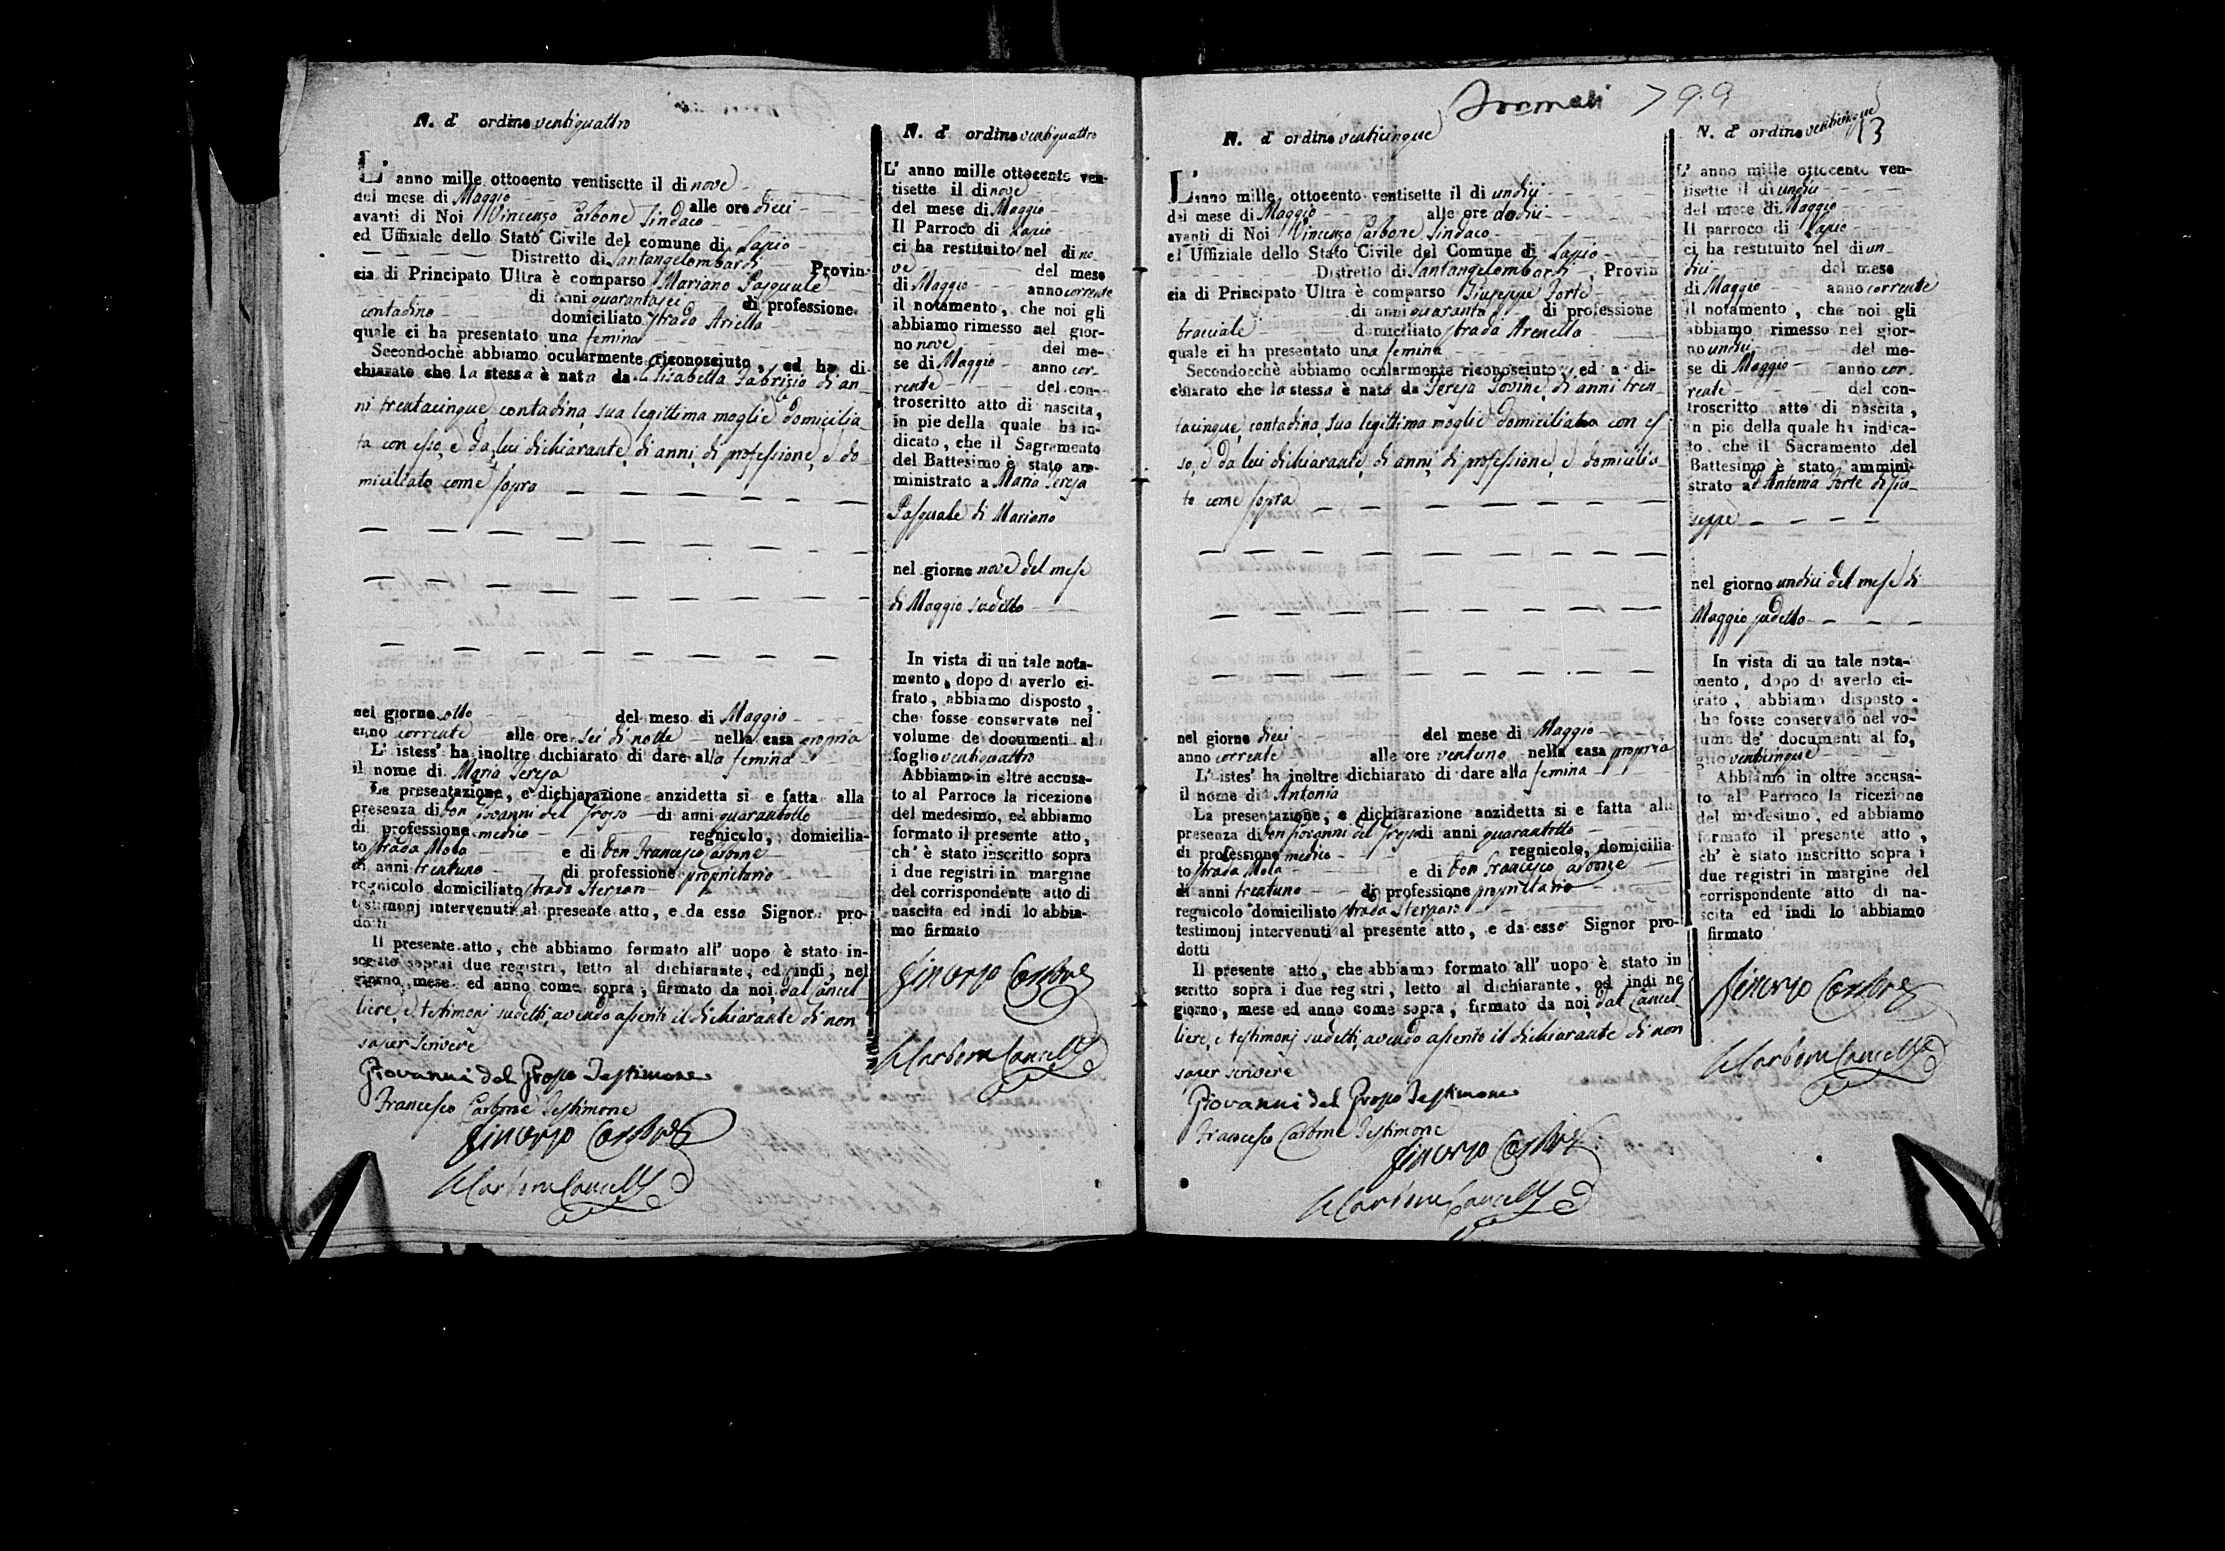 N. d' ordine ventiquattro
L' anno mille ottocento ventisette il di nove
del mese di Maggio alle ore dieci
avanti di Noi Vincenzo Carbone Sindaco
ed Uffiziale dello Stato Civile del comune di Lapio
Distretto di Santangelombardi Provin-
cia di Principato Ultra è comparso Mariano Pasquale
di anni quarantasei di professione
contadino domiciliato strada Ariella
quale ci ha presentato una femina
Secondochè abbiamo ocularmente riconosciuto, ed ha di-
chiarato che la stessa è nata da Elisabetta Fabrizio di an-
ni trentacinque contadina sua legittima moglie domicilia-
ta con esso, e da lui dichiarante di anni di professione, e do-
miciliato come sopra
nel giorno otto del mese di Maggio
anno corrente alle ore sei di notte nella casa propria
L' istess' ha inoltre dichiarato di dare alla femina
il nome di Maria Teresa
La presentazione, e dichiarazione anzidetta si e fatta alla
presenza di Don Giovanni del Grosso di anni quarantotto
di professione medico regnicolo, domicilia-
to strada Mola e di Don Francesco Carbone
di anni trentuno di professione proprietario
regnicolo domiciliato strada
testimonj intervenuti al presente atto, e da esso Signor pro-
dotti
Il presente atto, che abbiamo formato all' uopo è stato in-
scritto sopra i due registri, letto al dichiarante, ed indi, nel
giorno, mese ed anno come sopra, firmato da noi, dal Cancel-
liere, e testimonj sudetti, avendo asserito il dichiarante di non
saper scrivere
Giovanni del Grosso Testimone
Francesco Carbone Testimone
Vincenzo Carbone
Carbone Cancell
N. d' ordine ventiquattro
L' anno mille ottocento ven-
tisette il di nove
del mese di Maggio
Il Parroco di Lapio
ci ha restituito nel di no
ve del mese
di Maggio anno corrente
il notamento, che noi gli
abbiamo rimesso nel gior-
no nove del me-
se di Maggio anno cor-
rente del con-
troscritto atto di nascita,
in pie della quale ha in-
dicato, che il Sagramento
del Battesimo è stato am-
ministrato a Maria Teresa
Pasquale di Mariano
nel giorno nove del mese
di Maggio sudetto
In vista di un tale nota-
mento, dopo di averlo ci-
frato, abbiamo disposto,
che fosse conservato nel
volume de' documenti al
foglio ventiquattro
Abbiamo in oltre accusa-
to al Parroco la ricezione
del medesimo, ed abbiamo
formato il presente atto,
ch' è stato inscritto sopra
i due registri in margine
del corrispondente atto di
nascita ed indi lo abbia-
mo firmato
Vincenzo Carbone
Carbone Cancell
799
N. d' ordine venticinque
L' anno mille ottocento ventisette il di undici
del mese di Maggio alle ore dodici
avanti di Noi Vincenzo Carbone Sindaco
ed Uffiziale dello Stato Civile del Comune di Lapio
Distretto di Santangelombardi Provin
cia di Principato Ultra è comparso Giuseppe Forte
di anni quaranta di professione
bracciale domiciliato strada Arenella
quale ci ha presentato una femina
Secondocchè abbiamo ocularmente riconosciuto, ed a di-
chiarato che la stessa è nata da Teresa Iovine di anni tren-
tacinque contadina sua legittima moglie domiciliata con es
so, e da lui dichiarante di anni di professione, e domicilia-
to come sopra
nel giorno dieci del mese di Maggio
anno corrente alle ore ventuno nella casa propria
L' istes' ha inoltre dichiarato di dare alla femina
il nome di Antonia
La presentazione, e dichiarazione anzidetta si e fatta alla
presenza di Don Giovanni del Grosso di anni quarantotto
di professione medico regnicolo, domicilia-
to strada Mola e di Don Francesco Carbone
di anni trentuno di professione proprietario
regnicolo domiciliato strada
testimonj intervenuti al presente atto, e da esso Signor pro-
dotti
Il presente atto, che abbiamo formato all' uopo è stato in
scritto sopra i due registri, letto al dichiarante, ed indi ne
giorno, mese ed anno come sopra, firmato da noi, dal Cancel
liere, e testimonj sudetti, avendo asserito il dichiarante di non
saper scrivere
Giovanni del Grosso Testimone
Francesco Carbone Testimone
Vincenzo Carbone
Carbone Cancell
N. d' ordine venticinque
13
L' anno mille ottocento ven-
tisette il di undici
del mese di Maggio
Il parroco di Lapio
ci ha restituito nel di un
dici del mese
di Maggio anno corrente
il notamento, che noi gli
abbiamo rimesso nel gior-
no undici del me-
se di Maggio anno cor-
rente del con-
troscritto atto di nascita,
in pie della quale ha indica-
to che il Sacramento del
Battesimo è stato ammini-
strato ad Antonia Forte di Giu-
seppe
nel giorno undici del mese di
Maggio sudetto
In vista di un tale nota-
mento, dopo di averlo ci-
frato, abbiamo disposto
che fosse conservato nel vo-
lume de' documenti al fo,
glio venticinque
Abbiamo in oltre accusa-
to al Parroco la ricezione
del medesimo, ed abbiamo
formato il presente atto,
ch' è stato inscritto sopra i
due registri in margine del
corrispondente atto di na-
scita ed indi lo abbiamo
firmato
Vincenzo Carbone
Carbone Cancell